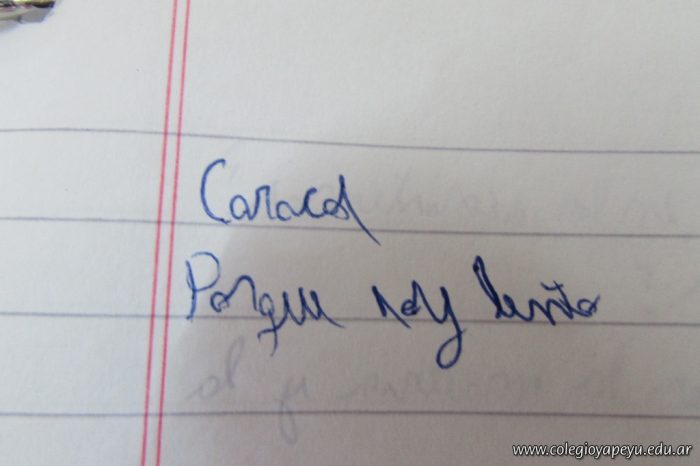 Caracol
Porque soy lento
www.colegioyapeyu.edu.ar